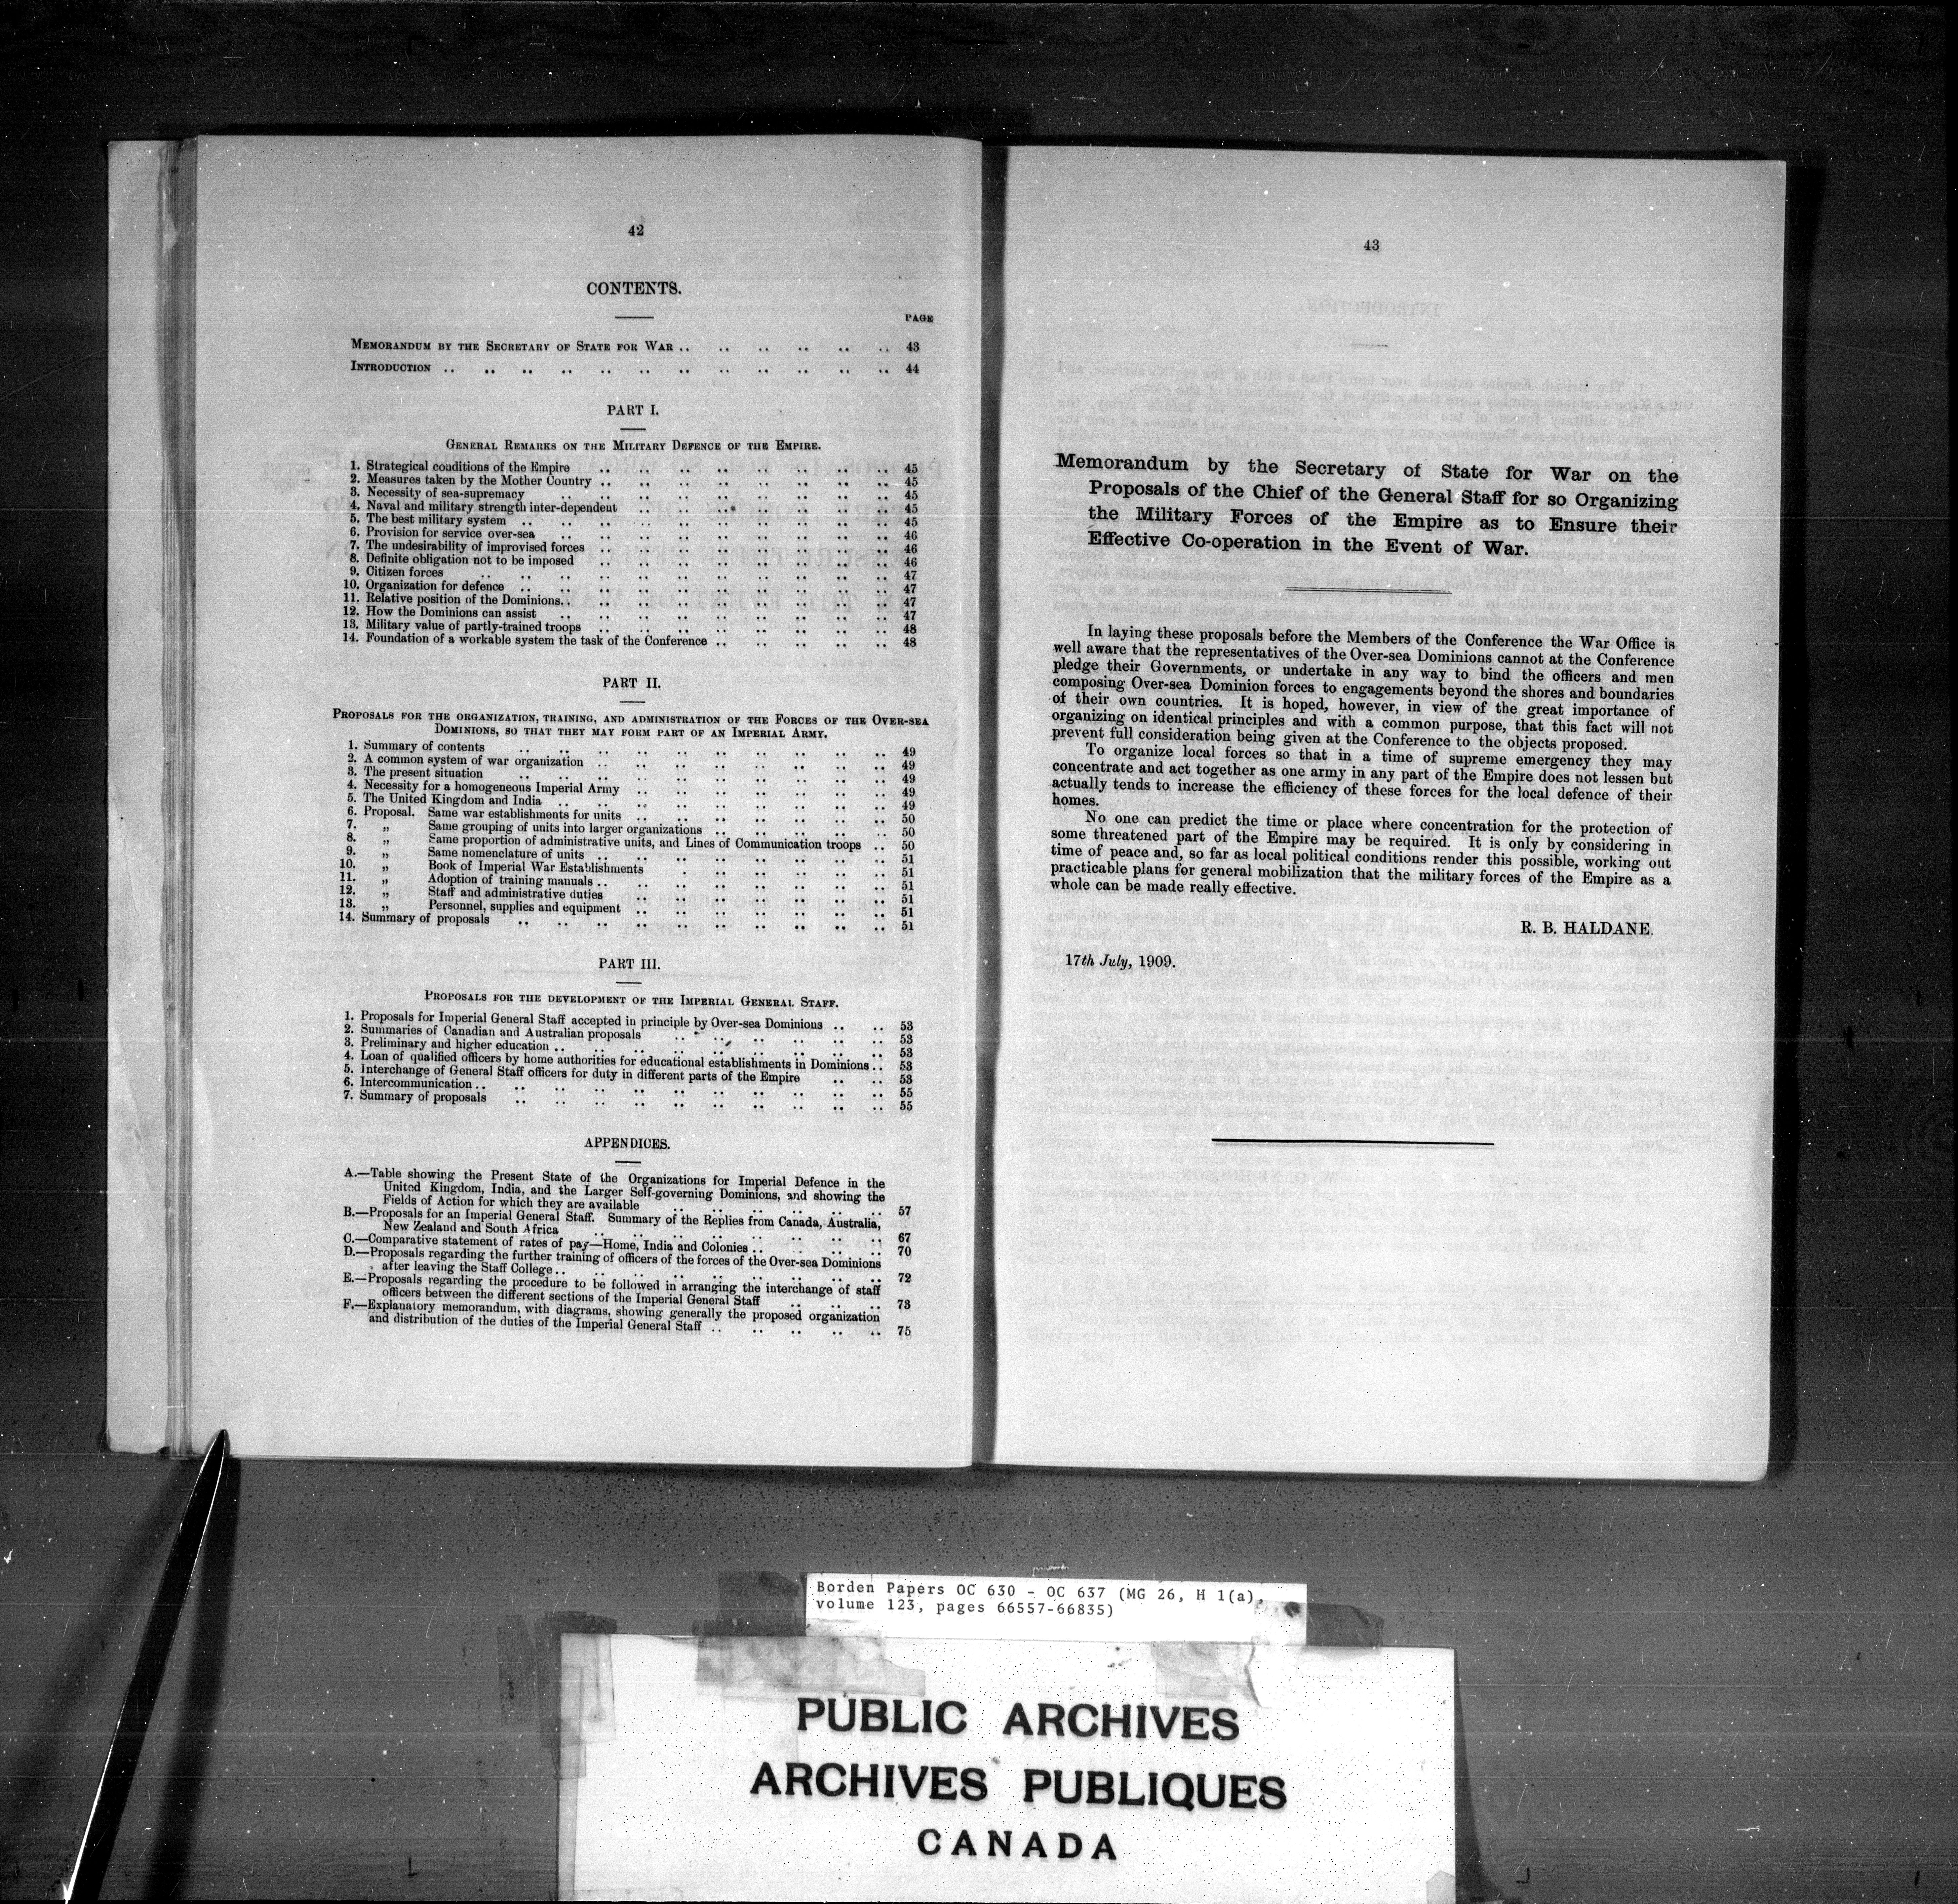 42
CONTENTS.
PAGE
MEMORANDUM BY THE SECRETARY OF STATE FOR WAR .. .. .. .. .. .. 43
INTRODUCTION .. .. .. .. .. .. .. .. .. .. .. .. 44
PART I.
GENERAL REMARKS ON THE MILITARY DEFENCE OF THE EMPIRE.
1. Strategical conditions of the Empire .. .. .. .. .. .. .. .. 45
2. Measures taken by the Mother Country .. .. .. .. .. .. .. .. 45
3. Necessity of sea-supremacy .. .. .. .. .. .. .. .. .. 45
4. Naval and military strength inter-dependent .. .. .. .. .. .. .. 45
5. The best military system .. .. .. .. .. .. .. .. .. .. 45
6. Provision for service over-sea .. .. .. .. .. .. .. .. .. 46
7. The undesirability of improvised forces .. .. .. .. .. .. .. .. 46
8. Definite obligation not to be imposed .. .. .. .. .. .. .. .. 46
9. Citizen forces .. .. .. .. .. .. .. .. .. .. .. 47
10. Organization for defence .. .. .. .. .. .. .. .. .. .. 47
11. Relative position of the Dominions.. .. .. .. .. .. .. .. .. 47
12. How the Dominions can assist .. .. .. .. .. .. .. .. .. 47
13. Military value of partly-trained troops .. .. .. .. .. .. .. .. 48
14. Foundation of a workable system the task of the Conference .. .. .. .. .. 48
PART II.
PROPOSALS FOR THE ORGANIZATION, TRAINING, AND ADMINISTRATION OF THE FORCES OF THE OVER-SEA
DOMINIONS, SO THAT THEY MAY FORM PART OF AN IMPERIAL ARMY.
1. Summary of contents .. .. .. .. .. .. .. .. .. .. 49
2. A common system of war organization .. .. .. .. .. .. .. .. 49
3. The present situation .. .. .. .. .. .. .. .. .. .. 49
4. Necessity for a homogeneous Imperial Army .. .. .. .. .. .. .. 49
5. The United Kingdom and India .. .. .. .. .. .. .. .. .. 49
6. Proposal. Same war establishments for units .. .. .. .. .. .. .. 50
7. „ Same grouping of units into larger organizations .. .. .. .. .. 50
8. „ Same proportion of administrative units, and Lines of Communication troops .. 50
9. „ Same nomenclature of units .. .. .. .. .. .. .. .. 51
10. „ Book of Imperial War Establishments .. .. .. .. .. .. 51
11. „ Adoption of training manuals .. .. .. .. .. .. .. .. 51
12. „ Staff and administrative duties .. .. .. .. .. .. .. 51
13. „ Personnel, supplies and equipment .. .. .. .. .. .. .. 51
14. Summary of proposals .. .. .. .. .. .. .. .. .. .. 51
PART III.
PROPOSALS FOR THE DEVELOPMENT OF THE IMPERIAL GENERAL STAFF.
1. Proposals for Imperial General Staff accepted in principle by Over-sea Dominions .. .. 53
2. Summaries of Canadian and Australian proposals .. .. .. .. .. .. 53
3. Preliminary and higher education .. .. .. .. .. .. .. .. .. 53
4. Loan of qualified officers by home authorities for educational establishments in Dominions .. 53
5. Interchange of General Staff officers for duty in different parts of the Empire .. .. 53
6. Intercommunication .. .. .. .. .. .. .. .. .. .. .. 55
7. Summary of proposals .. .. .. .. .. .. .. .. .. .. 55
APPENDICES.
A.—Table showing the Present State of the Organizations for Imperial Defence in the
United Kingdom, India, and the Larger Self-governing Dominions, and showing the
Fields of Action for which they are available .. .. .. .. .. .. 57
B.—Proposals for an Imperial General Staff. Summary of the Replies from Canada, Australia,
New Zealand and South Africa .. .. .. .. .. .. .. .. 67
C.—Comparative statement of rates of pay—Home, India and Colonies .. .. .. .. 70
D.—Proposals regarding the further training of officers of the forces of the Over-sea Dominions
after leaving the Staff College .. .. .. .. .. .. .. .. .. 72
E.—Proposals regarding the procedure to be followed in arranging the interchange of staff
officers between the different sections of the Imperial General Staff .. .. .. 73
F.—Explanatory memorandum, with diagrams, showing generally the proposed organization
and distribution of the duties of the Imperial General Staff .. .. .. .. .. 75
43
Memorandum by the Secretary of State for War on the
Proposals of the Chief of the General Staff for so Organizing
the Military Forces of the Empire as to Ensure their
Effective Co-operation in the Event of War.
In laying these proposals before the Members of the Conference the War Office is
well aware that the representatives of the Over-sea Dominions cannot at the Conference
pledge their Governments, or undertake in any way to bind the officers and men
composing Over-sea Dominion forces to engagements beyond the shores and boundaries
of their own countries. It is hoped, however, in view of the great importance of
organizing on identical principles and with a common purpose, that this fact will not
prevent full consideration being given at the Conference to the objects proposed.
To organize local forces so that in a time of supreme emergency they may
concentrate and act together as one army in any part of the Empire does not lessen but
actually tends to increase the efficiency of these forces for the local defence of their
homes.
No one can predict the time or place where concentration for the protection of
some threatened part of the Empire may be required. It is only by considering in
time of peace and, so far as local political conditions render this possible, working out
practicable plans for general mobilization that the military forces of the Empire as a
whole can be made really effective.
R. B. HALDANE.
17th July, 1909.
Borden Papers OC 630 - OC 637 (MG 26, H 1(a),
volume 123, pages 66557-66835)
PUBLIC ARCHIVES
ARCHIVES PUBLIQUES
CANADA